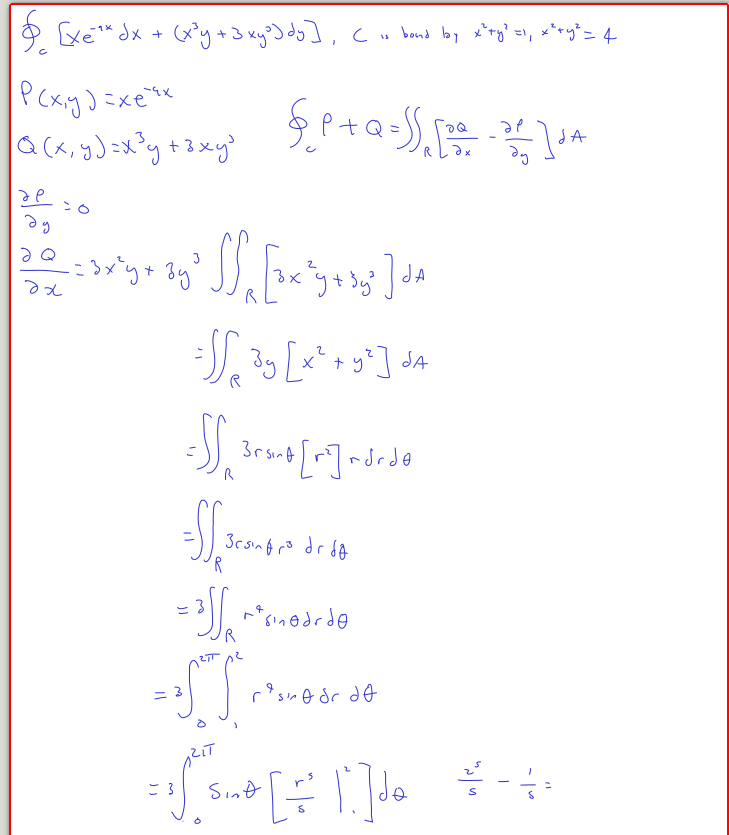 ∮_C [xe^{-4x} dx + (x³y + 3xy³) dy], C is bound by x²+y²=1, x²+y²=4
P(x,y) = xe^{-4x}
∮_C P + Q = ∬_R [∂Q/∂x - ∂P/∂y] dA
Q(x,y) = x³y + 3xy³
∂P/∂y = 0
∂Q/∂x = 3x²y + 3y³ ∬_R [3x²y + 3y³] dA
= ∬_R 3y [x² + y²] dA
= ∬_R 3r sinθ [r²] r dr dθ
= ∬_R 3r sinθ r³ dr dθ
= 3∬_R r⁴ sinθ dr dθ
= 3∫_0^{2π} ∫_1^2 r⁴ sinθ dr dθ
= 3∫_0^{2π} sinθ [r⁵/5 |_1^2] dθ 2⁵/5 - 1/5 =